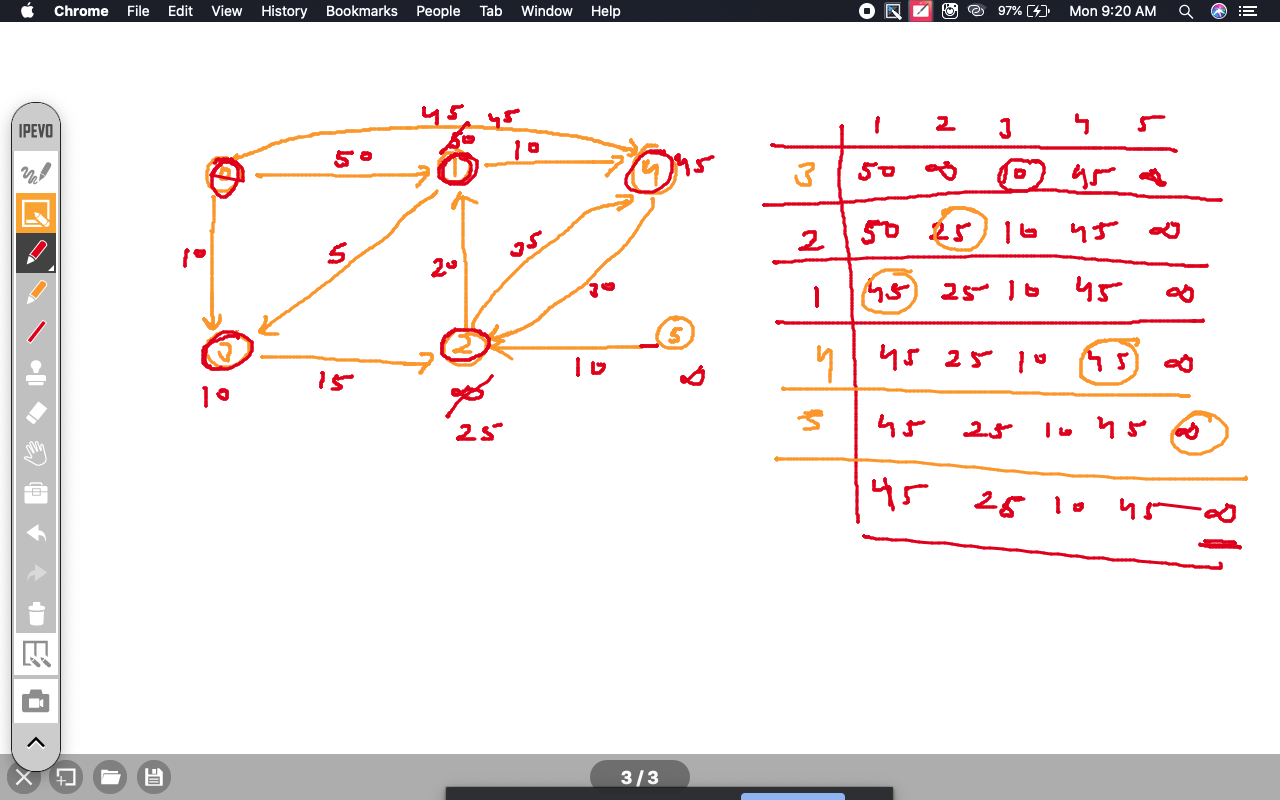 Chrome File Edit View History Bookmarks People Tab Window Help 97% Mon 9:20 AM
IPEVO
45 45
50
0 50 1 10 4 45
10 5 20 35 30
3 15 2 10 5
10 ∞ ∞
25
1 2 3 4 5
3 50 ∞ 10 45 ∞
2 50 25 10 45 ∞
1 45 25 10 45 ∞
4 45 25 10 45 ∞
5 45 25 10 45 ∞
45 25 10 45 ∞
3 / 3